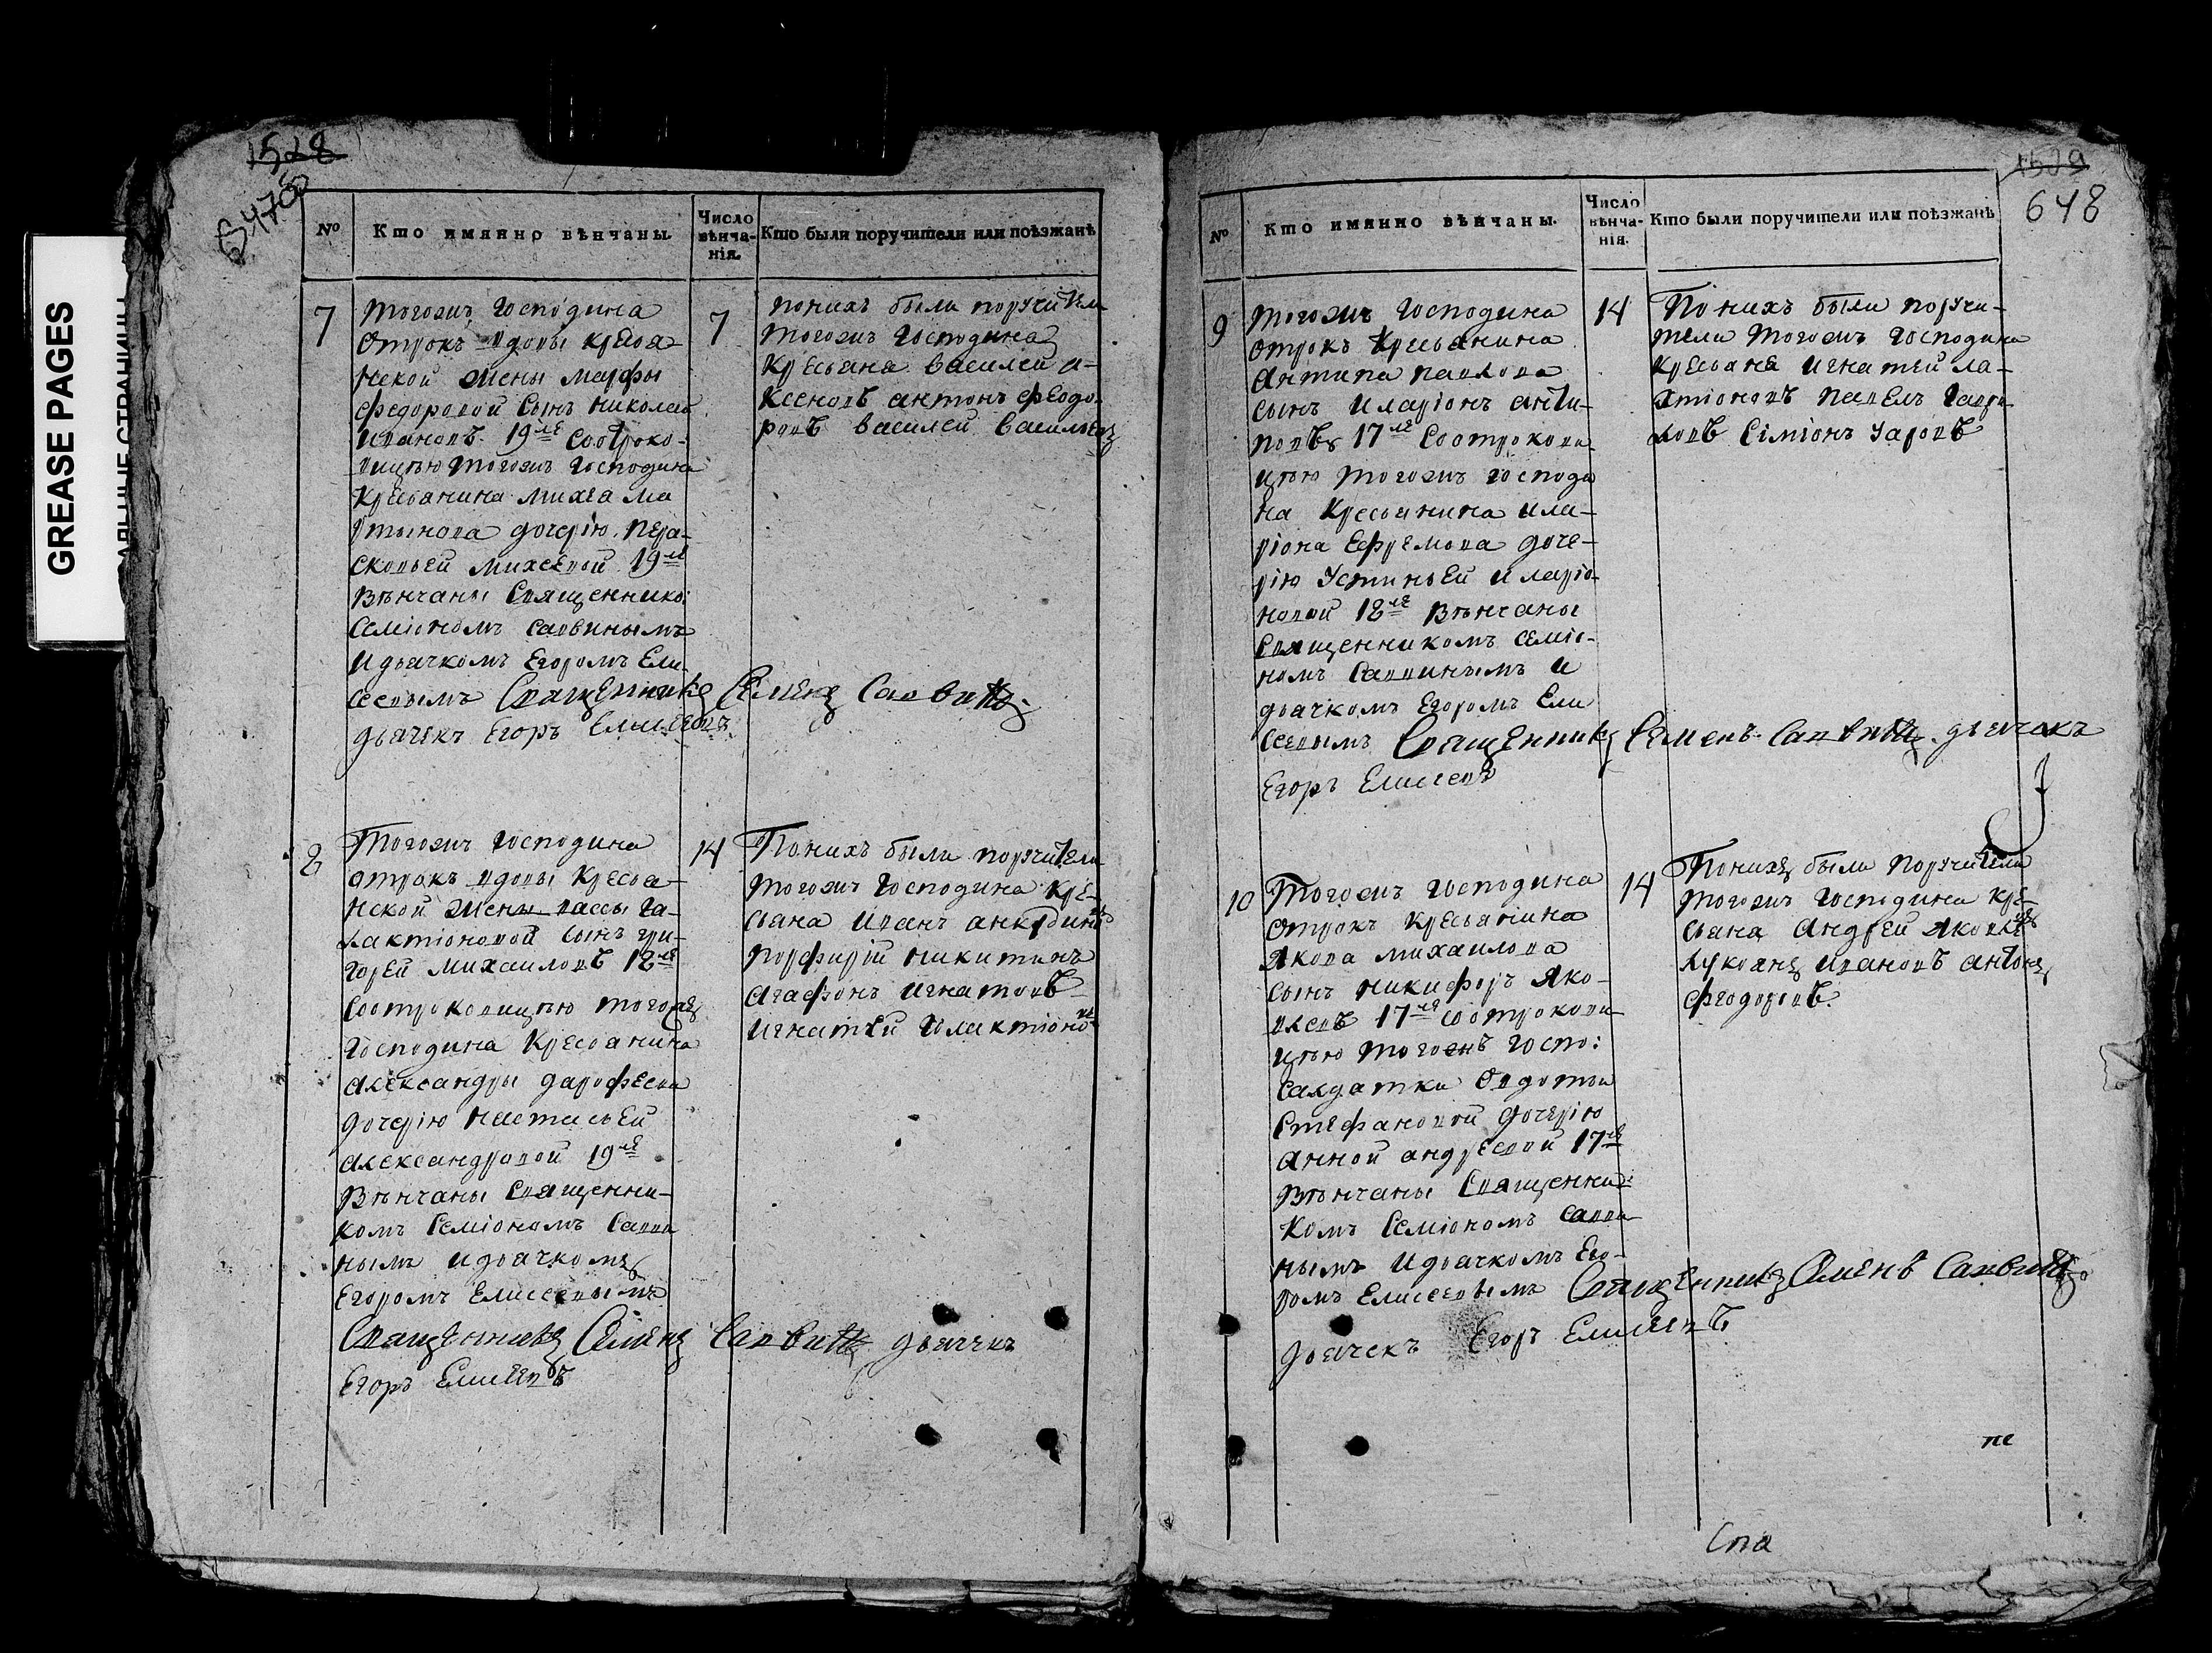 GREASE PAGES
1528
1529
648
№
Кто имянно вѣнчаны.
Число вѣнча-нія.
Кто были поручители или поѣзжанѣ
7
тогожъ Господина
отрокъ вдовы кресьа-
нской жены марфы
федоровой сынъ николай
ивановъ 19 лѣ соотроко-
вицъю тогожъ Господина
кресьанина михѣа ма
ртынова дочерію пера-
сковьей михеевой 19 лѣ
вѣнчаны священнико:
семіономъ саввинымъ
и дьячкомъ Егоромъ Ели
сеевымъ Священникъ Семенъ Саввинъ
дьячекъ Егоръ Елисеевъ
7
понихъ были поручители
тогожъ Господина
кресьана василей а-
ксеновъ антонъ феодо-
ровъ василей васильевъ
8
Тогожъ Господина
отрокъ вдовы кресьа-
нской жены вассы га-
лактіоновой сынъ гри-
горей михаиловъ 18 лѣ
соотроковицъю тогожъ
Господина кресьанина
александры дарофеева
дочерію настасьей
александровой 19 лѣ
Вѣнчаны священни-
комъ семіономъ савви
нымъ и дьячкомъ
Егоромъ Елисеевымъ
Священникъ Семенъ Саввинъ дьячекъ
Егоръ Елисеевъ
14
Понихъ были поручители
тогожъ Господина кре-
сьана иванъ анкудино
порфирій никитинъ
агафонъ игнатовъ
игнатей Галактіоно
№
Кто имянно вѣнчаны.
Число вѣнча-нія.
Кто были поручители или поѣзжанѣ
9
тогожъ Господина
отрокъ кресьанина
антипа павлова
сынъ иларіонъ анти-
повъ 17 лѣ соотрокови
цъю тогожъ господи
на кресьанина ила-
ріона Ефремова доче-
рію Устиньей иларіо-
новой 18 лѣ вѣнчаны
священникомъ семіо-
номъ саввинымъ и
дьячкомъ Егоромъ Ели
сеевымъ Священникъ Семенъ Саввинъ дьячекъ
Егоръ Елисеевъ
14
Понихъ были поручи-
тели тогожъ Господина
кресьана игнатей ла-
ктіоновъ павелъ гаври-
ловъ сіміонъ Уаровъ
10
Тогожъ Господина
отрокъ кресьанина
якова михаилова
сынъ никифоръ яко-
влевъ 17 лѣ соотрокови-
цъю тогожъ госпо:
салдатки овдотьи
стефановой дочерію
анной андреевой 17 лѣ
вѣнчаны священни-
комъ семіономъ савви-
нымъ и дьячкомъ его-
ромъ Елисеевымъ Священникъ Семенъ Саввинъ
дьячекъ Егоръ Елисеевъ
14
Понихъ были поручители
тогожъ Господина кре-
сьана андрей яковле
лукоянъ ивановъ антонъ
феодоровъ.
пе
Спа